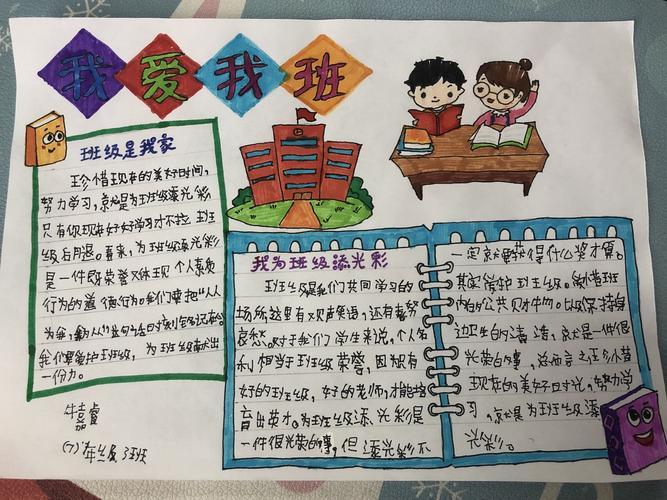 我爱我班
班级是我家
珍惜现在的美好时间,
努力学习,就是为班级添光彩
只有你现在好好学习才不拉班
级后腿。看来,为班级添光彩
是一件既荣誉又体现个人素质
行为的道德行为。我们要把“人人
为我,我为人人”这句话时刻
我们要爱护班级,为班级献出
一份力。
(7)年级3班
我为班级添光彩
班级是我们共同学习的
场所,这里有欢声笑语,还有
哀愁。对于我们学生来说,个人名
利相当于班级荣誉,因为只有
好的班级,好的老师,才能培
育出英才。为班级添光彩是
一件很光荣的事,但添光彩不
一定就要获得什么奖才算。
其实爱护班级。爱惜班
内的公共财物。以及保持自
身边卫生的清洁,就是一件很
光荣的事,总而言之珍惜
现在的美好时光,努力学
习,就是为班级添
光彩。